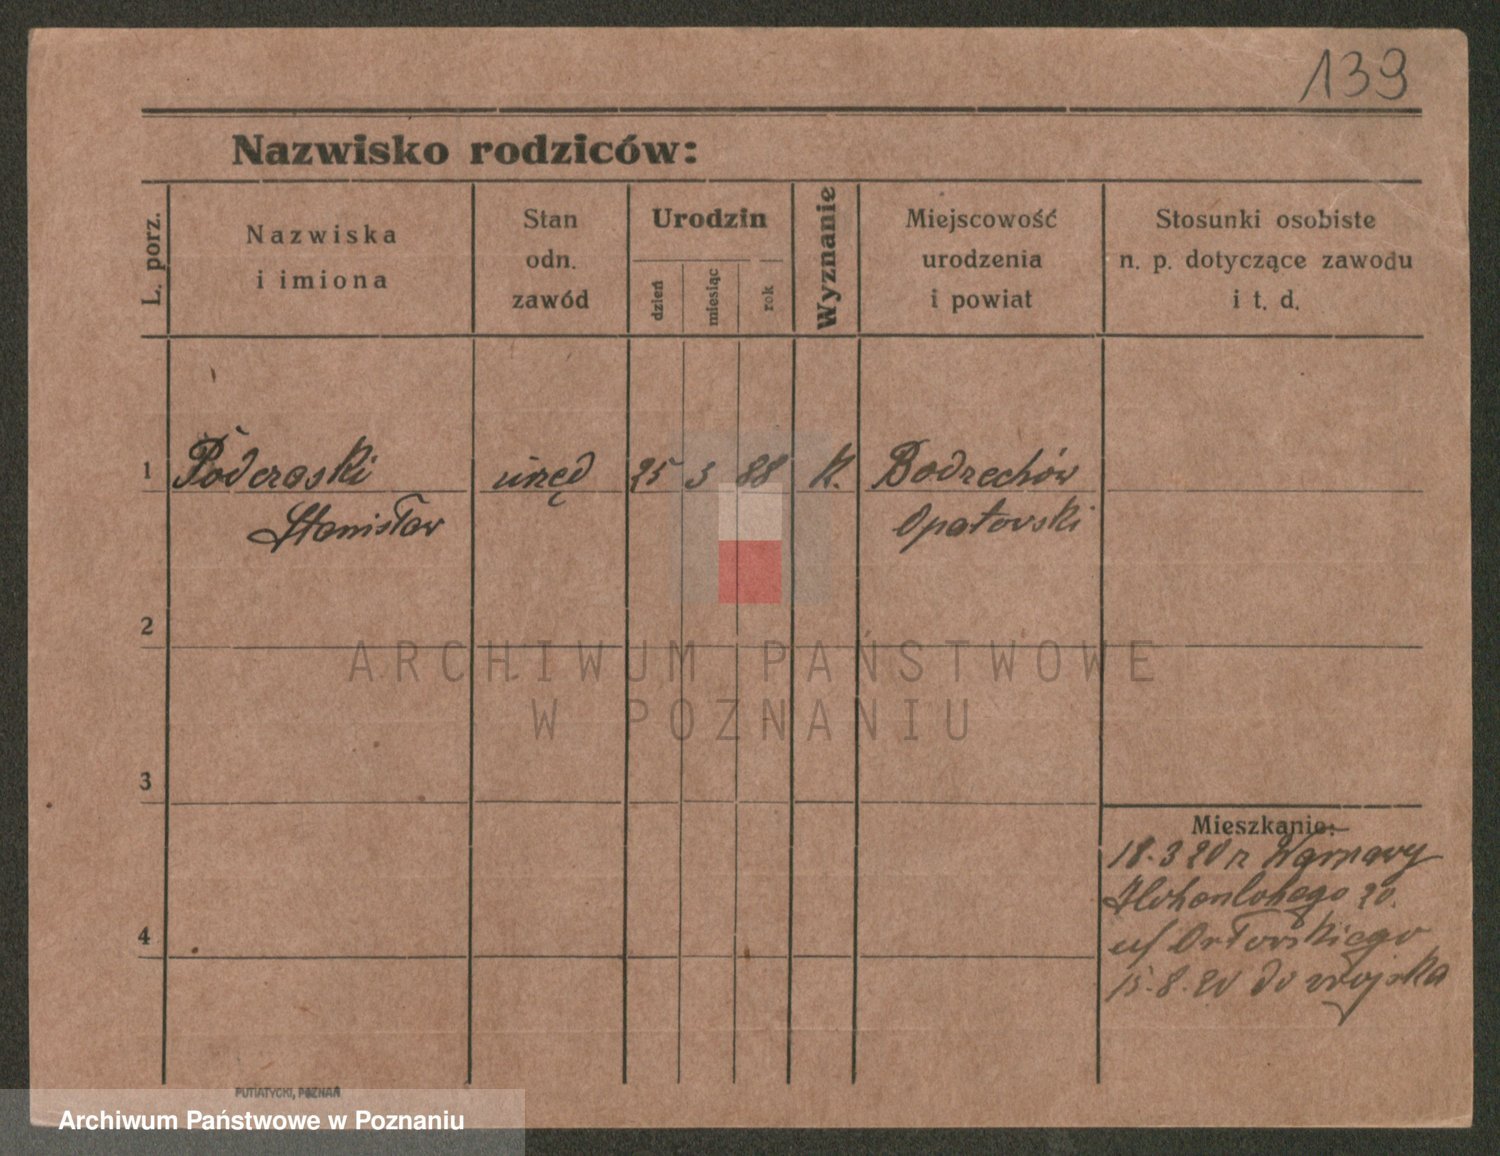 139
Nazwisko rodziców:
L. porz.
Nazwiska
i imiona
Stan
odn.
zawód
Urodzin
dzień
miesiąc
rok
Wyznanie
Miejscowość
urodzenia
i powiat
Stosunki osobiste
n. p. dotyczące zawodu
i t. d.
1 Podczaski urzęd 25 3 88 K. Bodzechów
Stanisław Opatowski
2
ARCHIWUM PAŃSTWOWE
W POZNANIU
3
Mieszkanie:
18.3 20 z Warszawy
Hohenlohego 20.
u/ Orłowskiego
15.8.20 do wojska
4
PUTIATYCKI, POZNAŃ
Archiwum Państwowe w Poznaniu